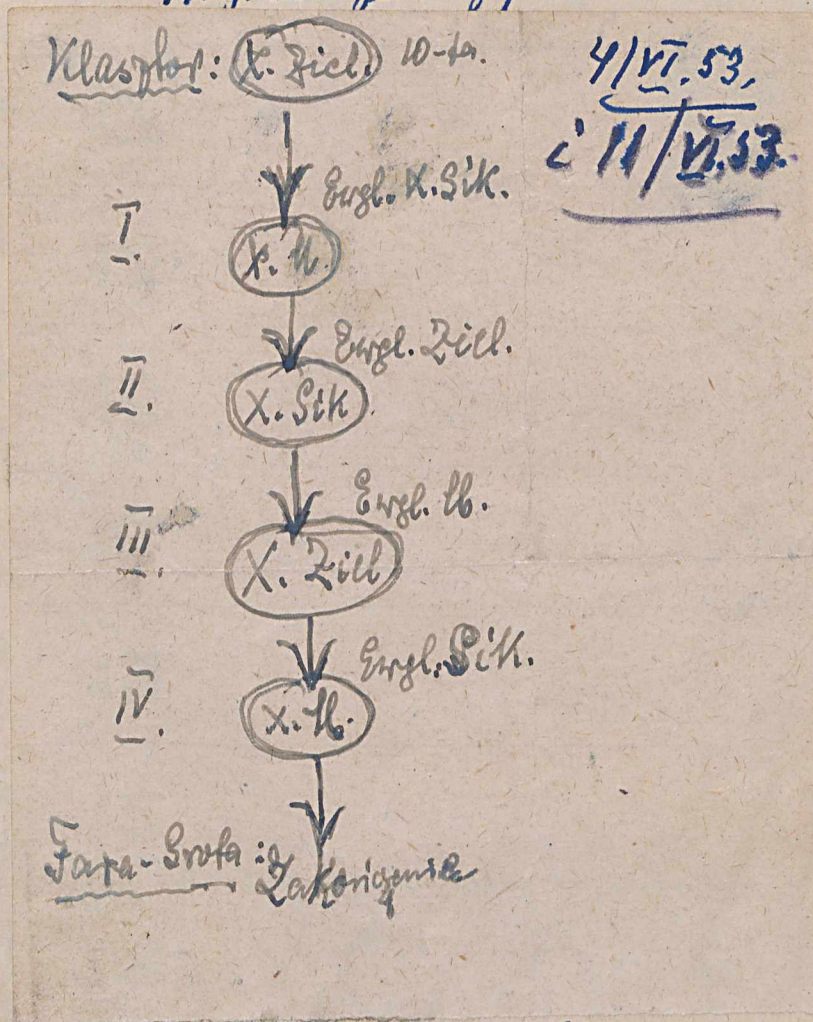 Klasztor: X. Ziel. 10-ta.
4/VI.53.
i 11/VI.53.
Ewgl. X. Sik.
I. X. U.
Ewgl. Ziel.
II. X. Sik
Ewgl. Ub.
III. X. Ziel
Ewgl. Sik.
IV. X. Ub.
Fara-Grota: Zakończenie